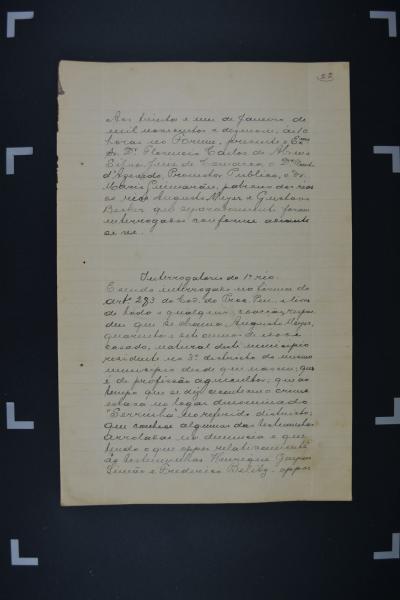 22
Aos trinta e um de Janeiro de
mil novecentos e dezenove, ás 10
horas no Forum, presente o Exmo
Sr. Dr. Florencio Carlos de Abreu
Silva, Juiz de Comarca, o Dr.
d'Azevedo, Promotor Publico, o Dr.
Mario Guimarães, patrono dos réos
os réos Augusto Meyer e Gustavo
que separadamente foram
interrogados conforme adiante
se vê.
Interrogatorio do 1º réo.
Sendo interrogado na forma do
artº 283 do Cod. do Proc. Pen. e livre
de toda e qualquer coacção, respon
deu que se chama Augusto Meyer,
quarenta e sete annos de idade
casado, natural deste municipio
residente no 3º districto do mesmo
municipio desde que nasceu; que
é de profissão agricultor; que ao
tempo que se diz acontecido o crime
estava no logar denominado
"Serrinha" no referido districto;
que conhece algumas das testemunhas
arroladas na denuncia e que
tendo o que oppor relativamente
ás testemunhas Henrique
Simão e Frederico oppor